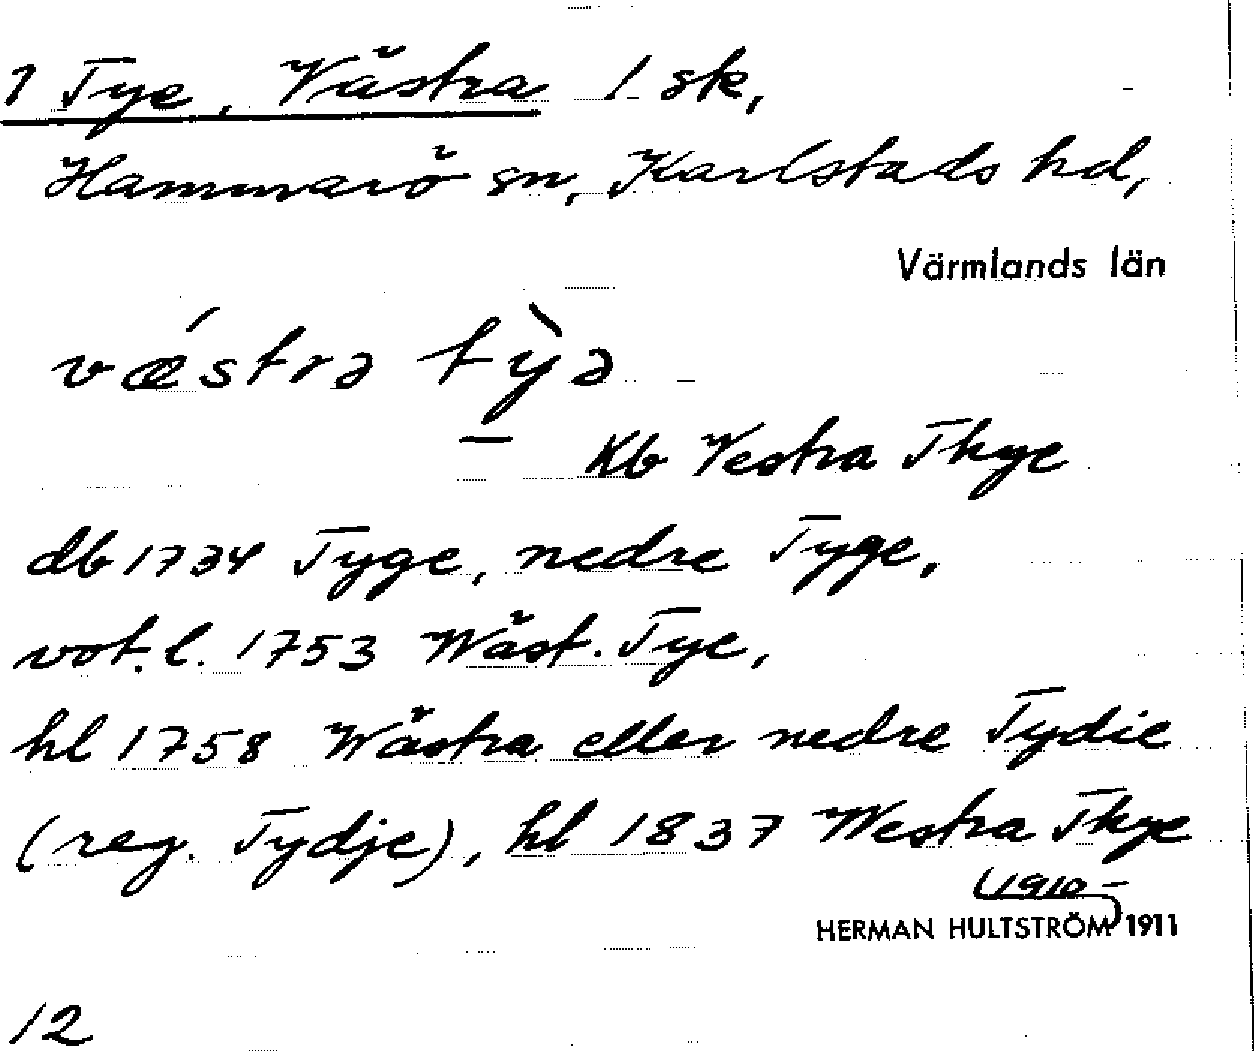 1 Tye, Västra 1 sk,
Hammarö sn, Karlstads hd,
Värmlands län
vǽstrə tỳə
Kb Vestra Thye
db 1734 Tyge, nedre Tyge,
vot. l. 1753 Wäst. Tye,
hl 1758 Wästra eller nedre Tydie
(reg. Tydje), hl 1837 Westra Thye
1910–
HERMAN HULTSTRÖM 1911
12